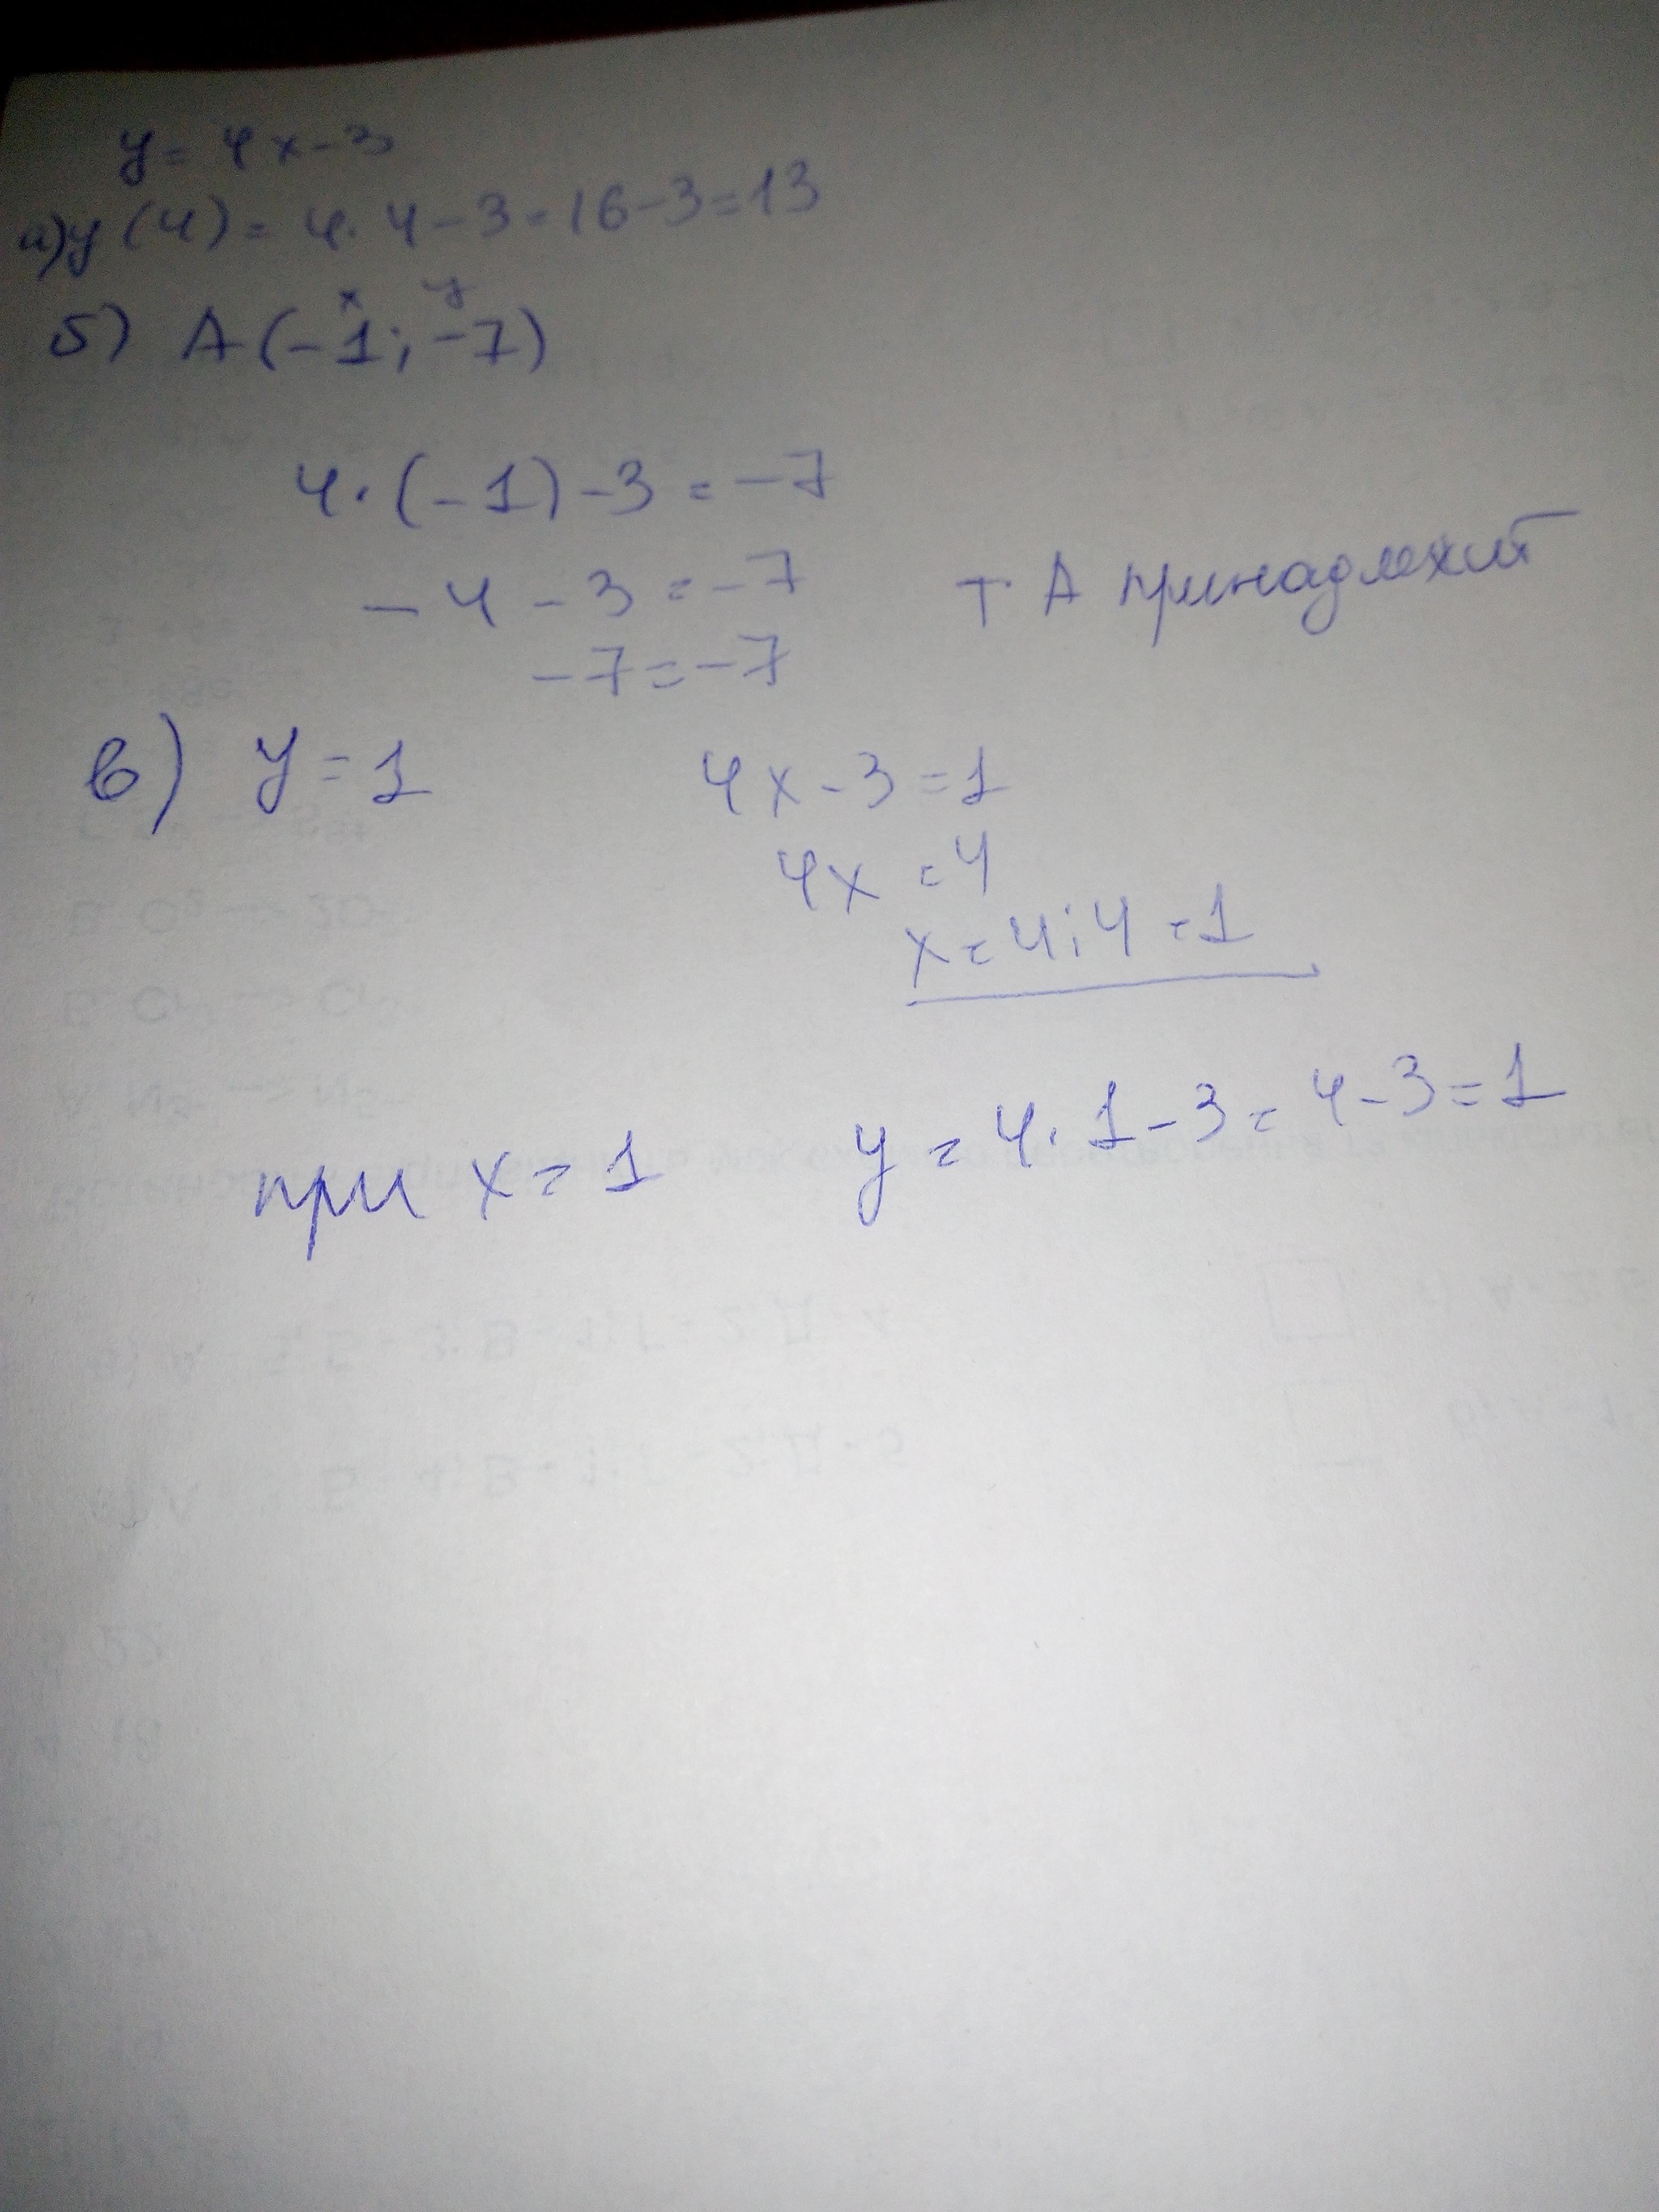 y = 4x - 3
а) y (4) = 4 · 4 - 3 = 16 - 3 = 13
x y
б) A (-1; -7)
4 · (-1) - 3 = -7
-4 - 3 = -7 т. А принадлежит
-7 = -7
в) y = 1 4x - 3 = 1
4x = 4
x = 4 : 4 = 1
при x = 1 y = 4 · 1 - 3 = 4 - 3 = 1